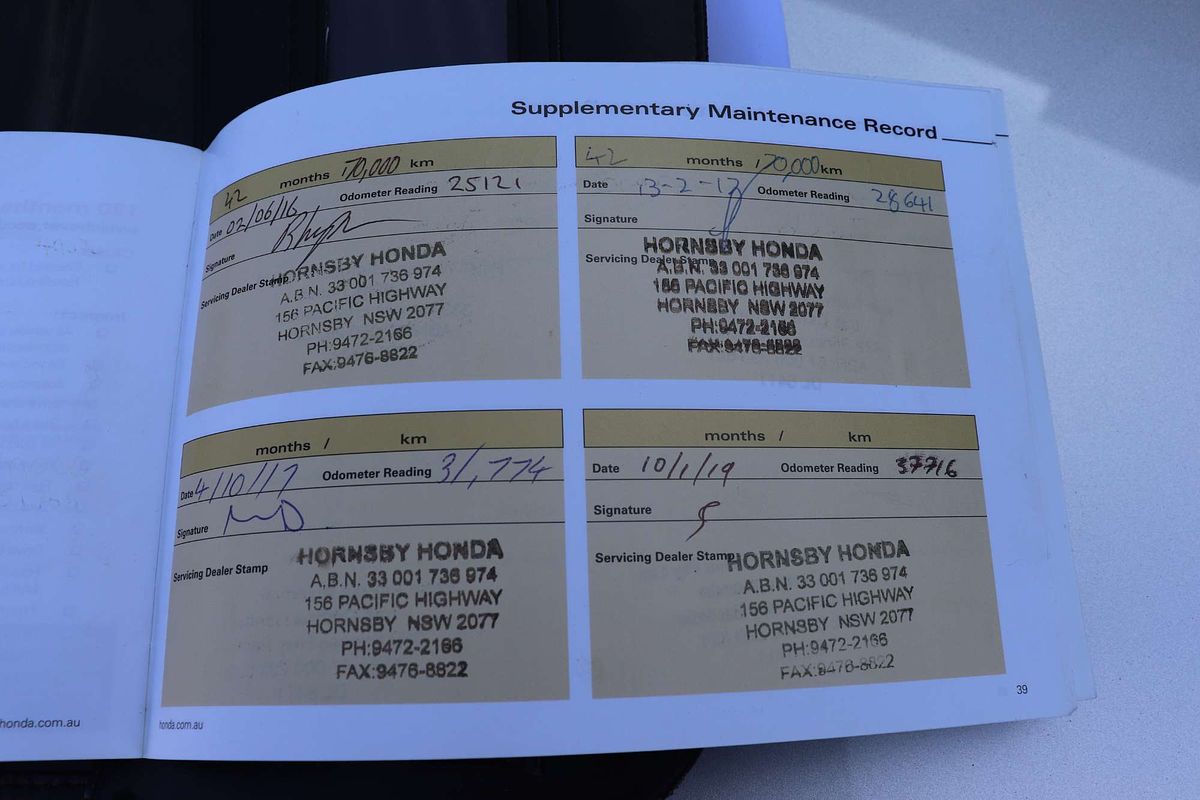 Supplementary Maintenance Record
42 months 70,000 km
Date 02/06/16 Odometer Reading 25121
Signature
Servicing Dealer Stamp
HORNSBY HONDA
A.B.N. 33 001 736 974
156 PACIFIC HIGHWAY
HORNSBY NSW 2077
PH:9472-2166
FAX:9476-8822
42 months 70,000 km
Date 13-2-17 Odometer Reading 28641
Signature
Servicing Dealer Stamp
HORNSBY HONDA
A.B.N. 33 001 736 974
156 PACIFIC HIGHWAY
HORNSBY NSW 2077
PH:9472-2166
FAX:9476-8822
months / km
Date 4/10/17 Odometer Reading 31,774
Signature
Servicing Dealer Stamp
HORNSBY HONDA
A.B.N. 33 001 736 974
156 PACIFIC HIGHWAY
HORNSBY NSW 2077
PH:9472-2166
FAX:9476-8822
months / km
Date 10/1/19 Odometer Reading 37716
Signature
Servicing Dealer Stamp
HORNSBY HONDA
A.B.N. 33 001 736 974
156 PACIFIC HIGHWAY
HORNSBY NSW 2077
PH:9472-2166
FAX:9476-8822
honda.com.au
honda.com.au
39